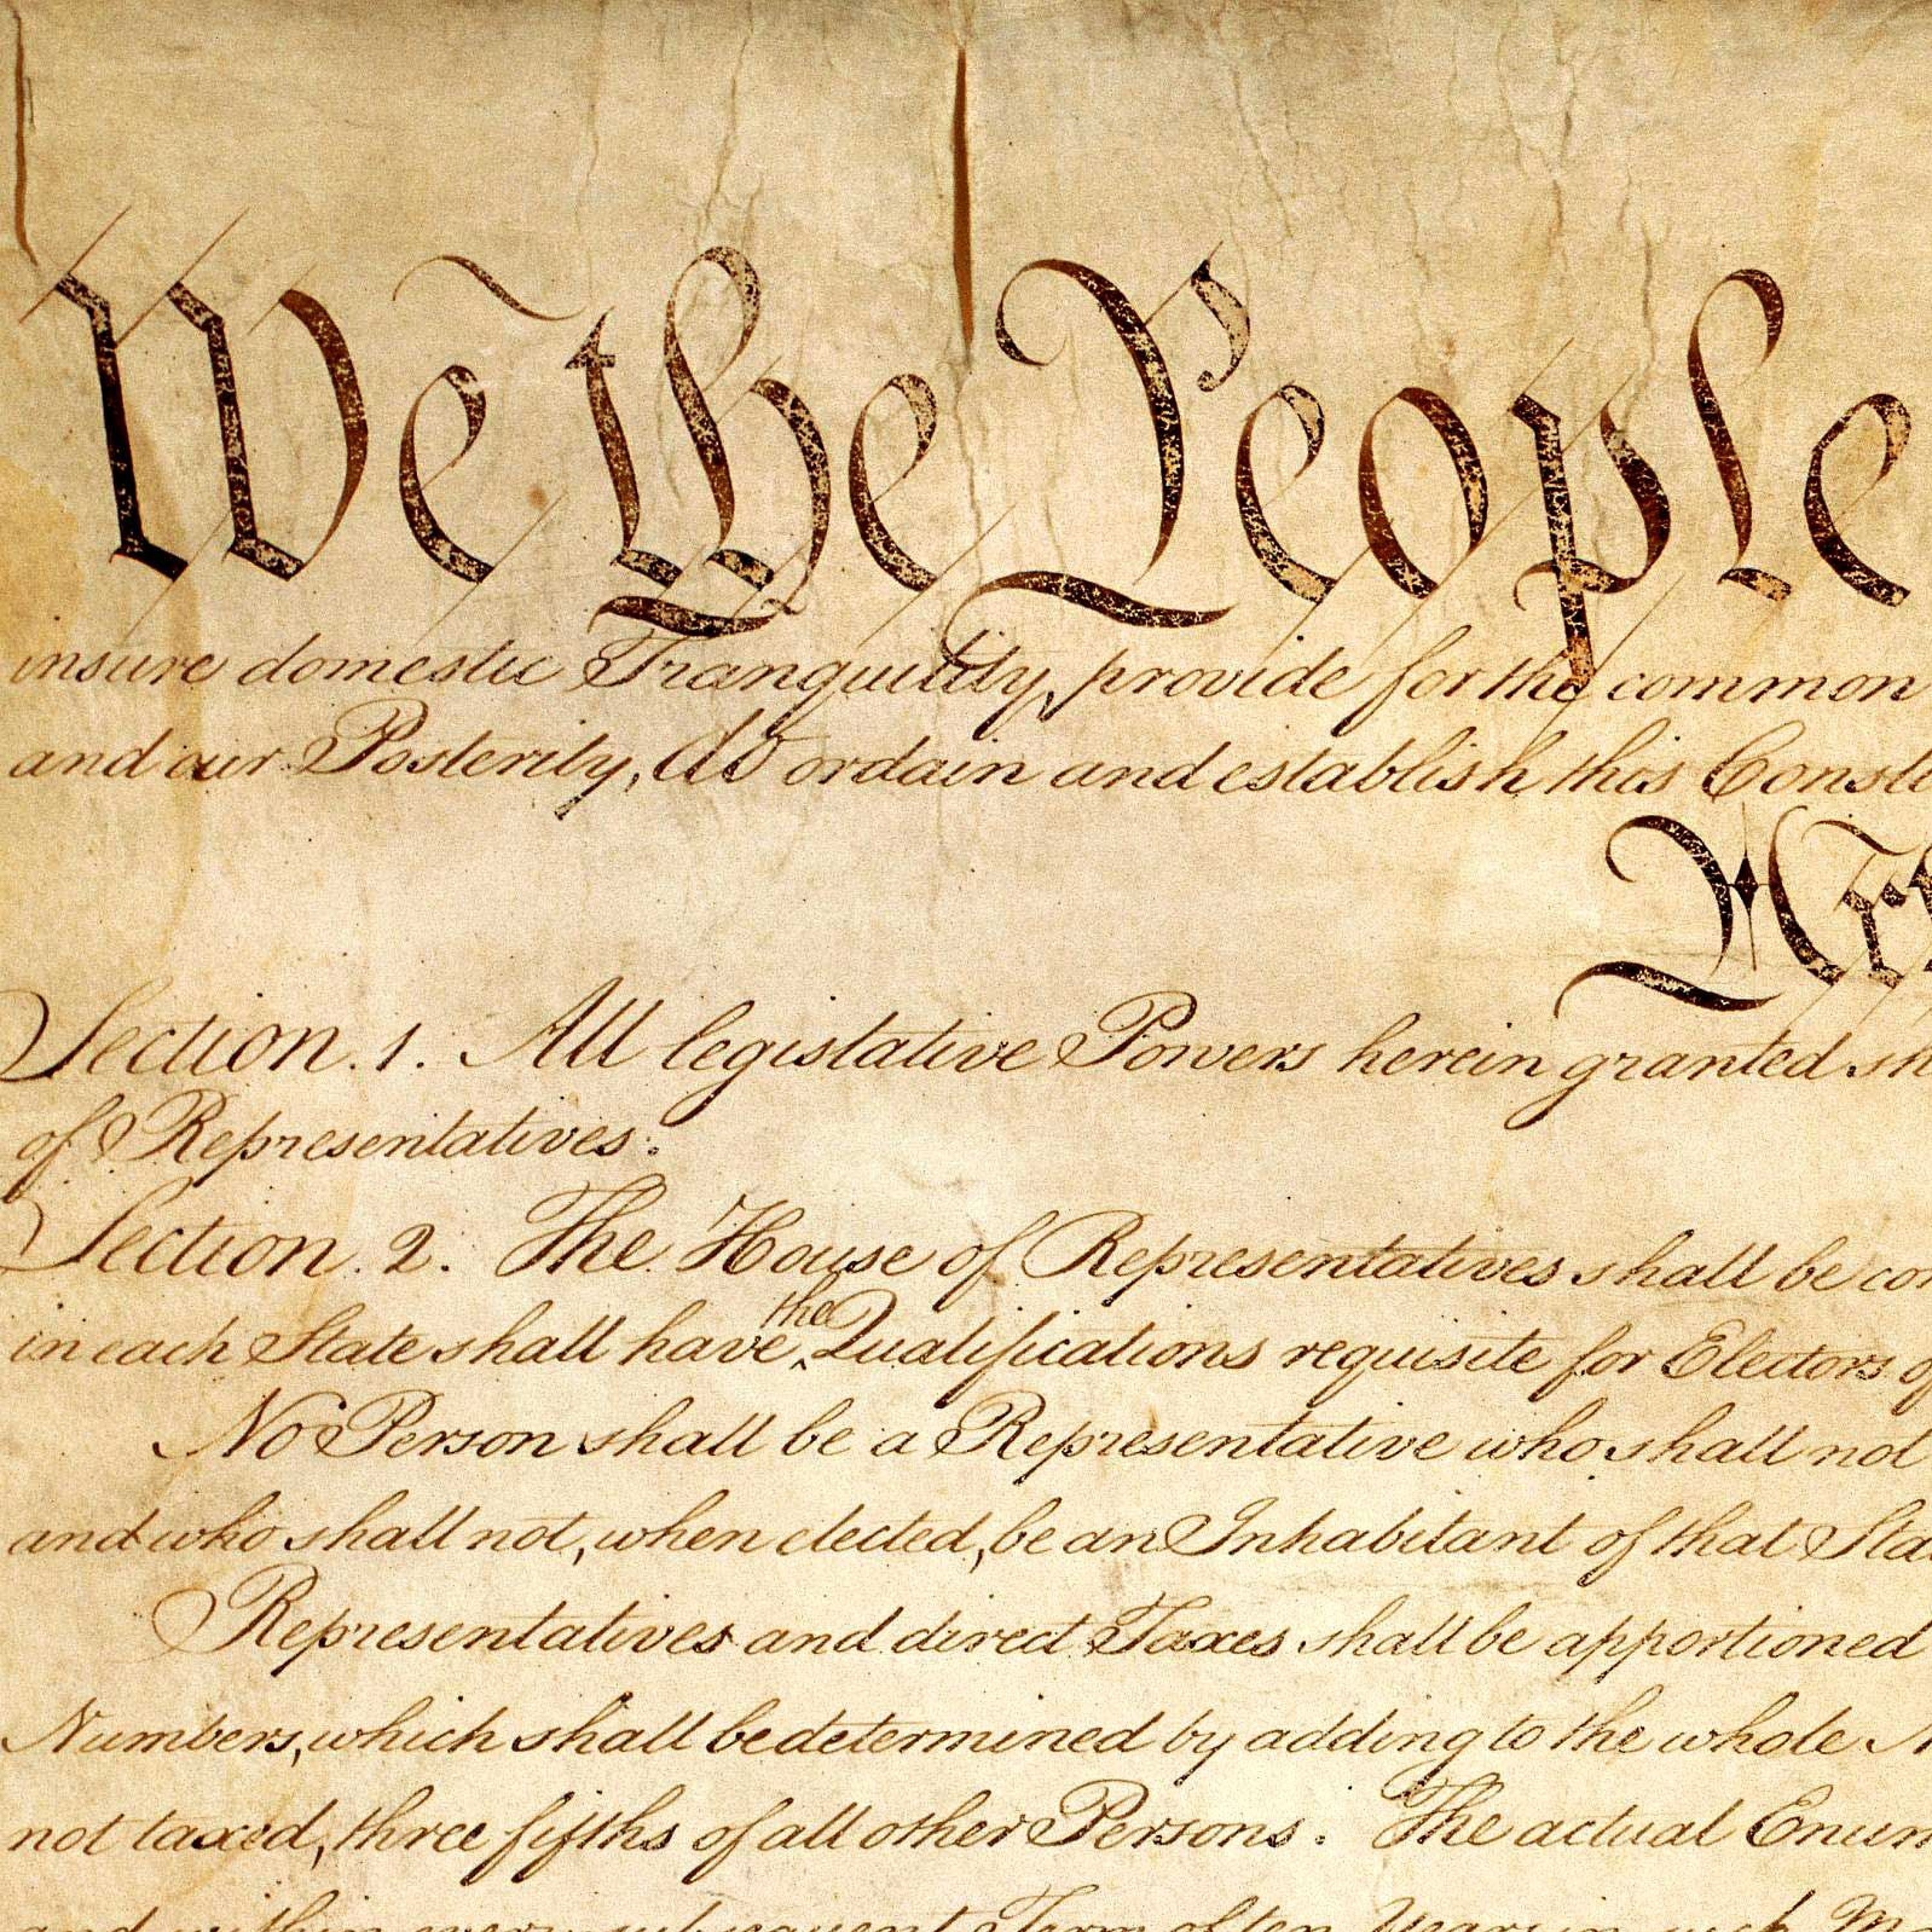 We the People
insure domestic Tranquility, provide for the common
and our Posterity, do ordain and establish this Consti
Arti
Section. 1. All legislative Powers herein granted sh
of Representatives.
Section. 2. The House of Representatives shall be co
the
in each State shall have Qualifications requisite for Electors of
No Person shall be a Representative who shall not
and who shall not, when elected, be an Inhabitant of that Sta
Representatives and direct Taxes shall be apportioned
Numbers, which shall be determined by adding to the whole N
not taxed, three fifths of all other Persons. The actual Enum
and within every subsequent Term of ten Years, in such M